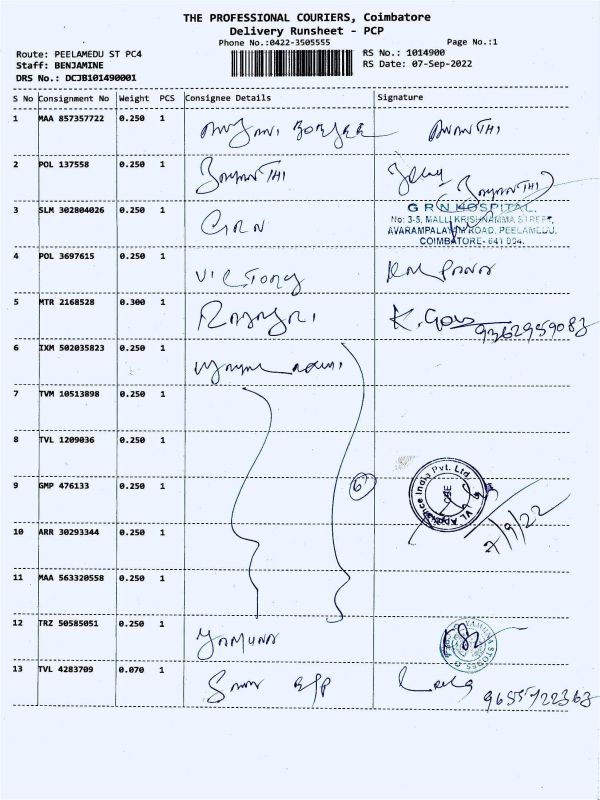 THE PROFESSIONAL COURIERS, Coimbatore
Delivery Runsheet - PCP
Phone No.:0422-3505555
Page No.:1
Route: PEELAMEDU ST PC4
RS No.: 1014900
Staff: BENJAMINE
RS Date: 07-Sep-2022
DRS No.: DCJB101490001
S No Consignment No Weight PCS Consignee Details Signature
1 MAA 857357722 0.250 1
2 POL 137558 0.250 1
3 SLM 302804026 0.250 1 GRN
GRN HOSPITAL
No: 3-5, MALLI KRISHNAMMA STREET,
AVARAMPALAYAM ROAD, PEELAMEDU,
COIMBATORE- 641 004.
4 POL 3697615 0.250 1 VICTORY
5 MTR 2168528 0.300 1 K. Gow 9362959083
6 IXM 502035823 0.250 1
7 TVM 10513898 0.250 1
8 TVL 1209036 0.250 1
9 GMP 476133 0.250 1 6
Appliance India Pvt. Ltd
CBE
7/9/22
10 ARR 30293344 0.250 1
11 MAA 563320558 0.250 1
12 TRZ 50585051 0.250 1 YAMUNA
13 TVL 4283709 0.070 1